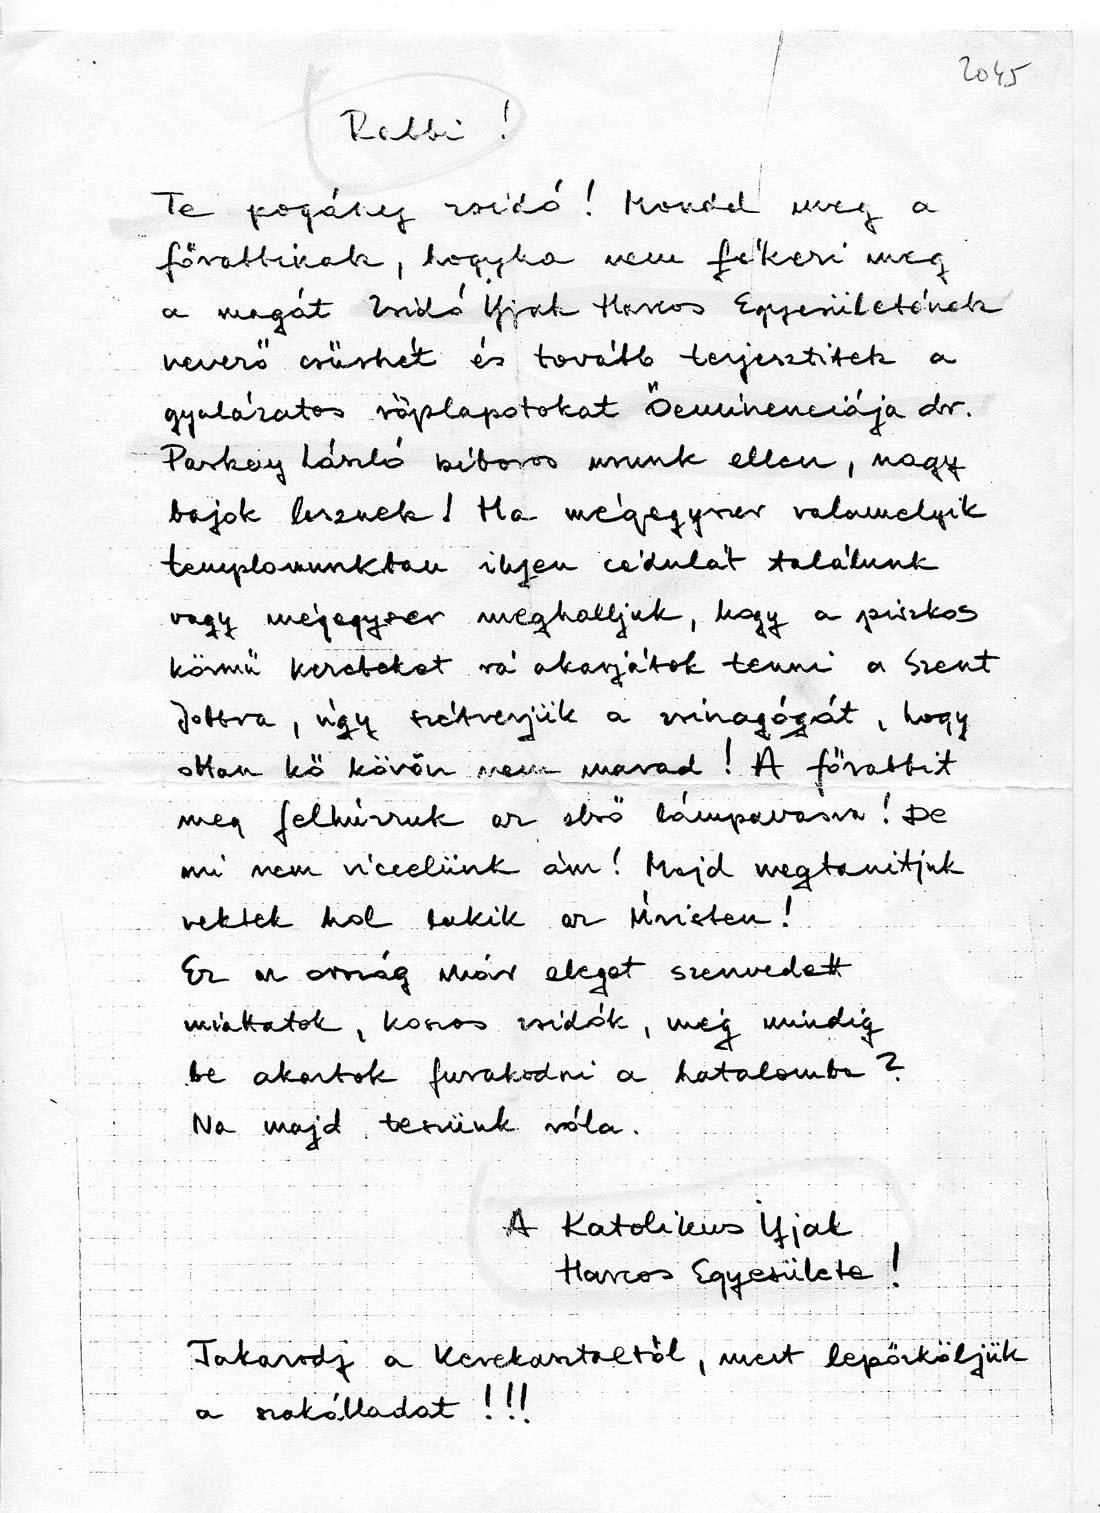 2045
Rabbi !
Te pogány zsidó! Mondd meg a
főrabbinak, hogyha nem fékezi meg
a magát Zsidó Ifjak Harcos Egyesületének
nevező csürhét és tovább terjesztitek a
gyalázatos röplapotokat Őeminenciája dr.
Paskay László bíboros urunk ellen, nagy
bajok lesznek! Ha mégegyszer valamelyik
templomunkban ilyen cédulát találunk
vagy mégegyszer meghalljuk, hogy a piszkos
körmű kezeteket rá akarjátok tenni a Szent
Jobbra, úgy szétverjük a zsinagógát, hogy
ottan kő kövön nem marad! A főrabbit
meg felhúzzuk az első lámpavasra! De
mi nem viccelünk ám! Majd megtanitjuk
nektek hol lakik az Úristen!
Ez az ország már eleget szenvedett
miattatok, koszos zsidók, még mindig
be akartok furakodni a hatalomba?
Na majd teszünk róla.
A Katolikus Ifjak
Harcos Egyesülete!
Takarodj a Kerekasztaltól, mert lepörköljük
a szakálladat !!!